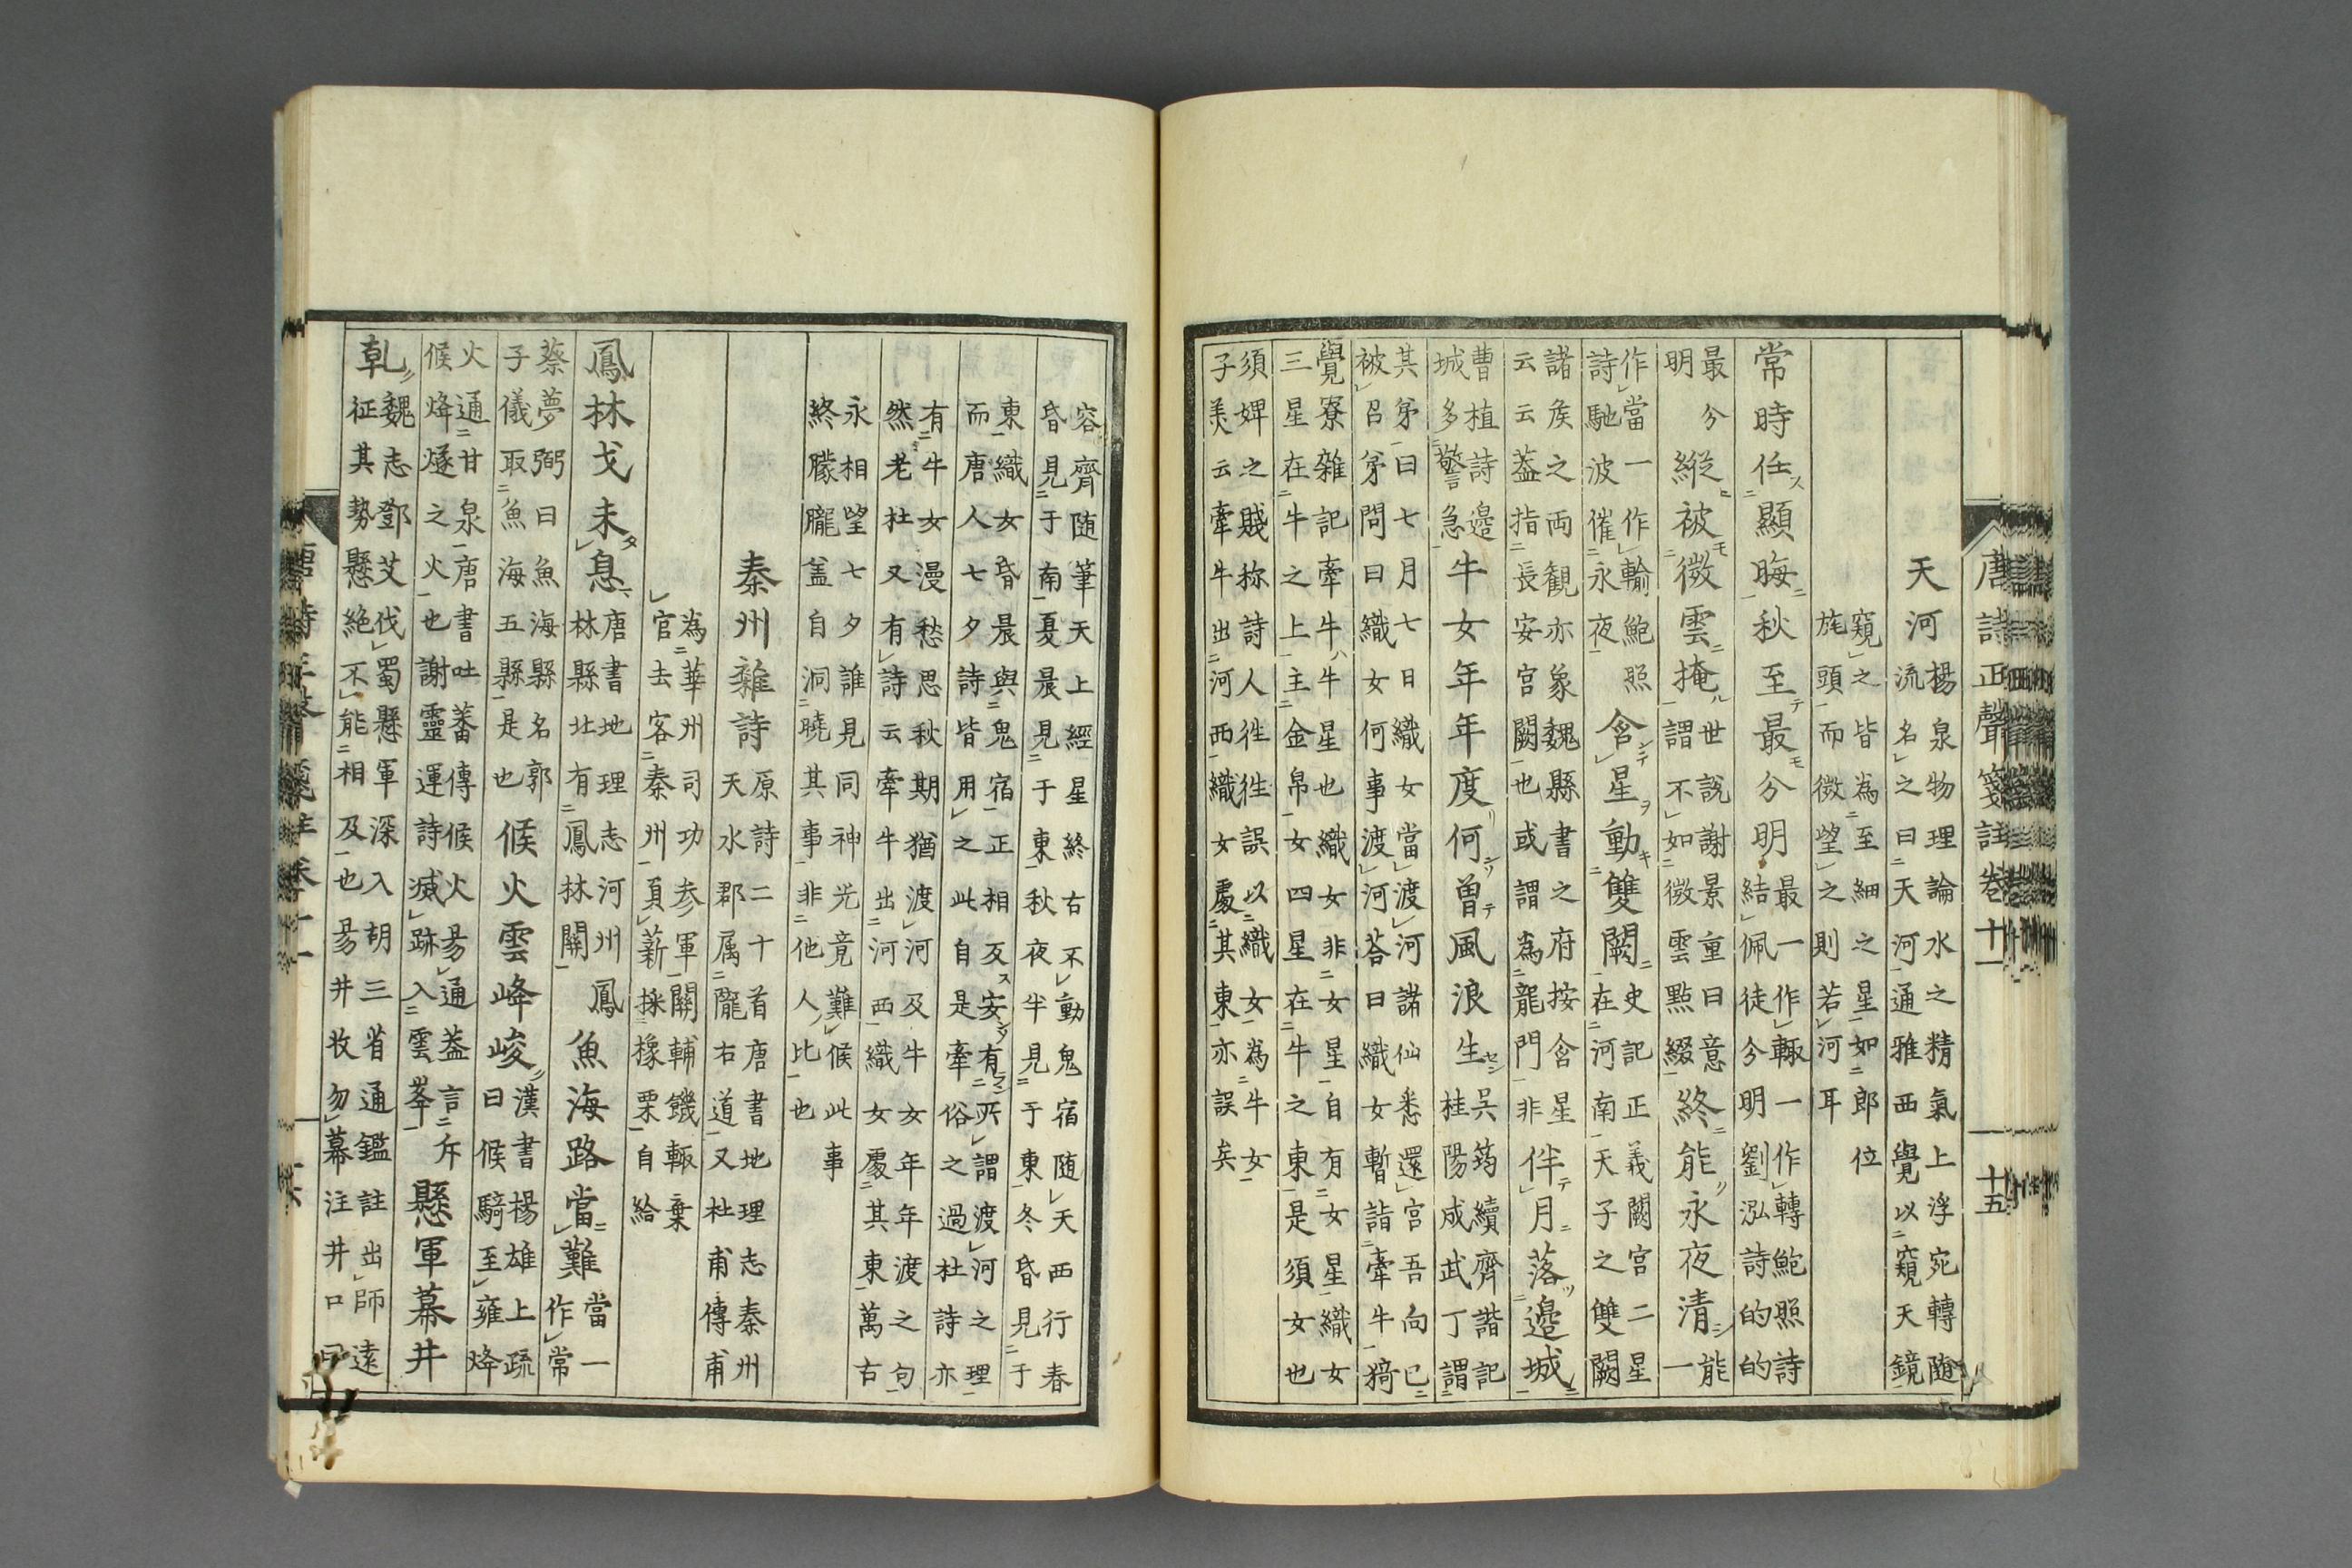 唐詩正聲箋註卷十一 十五
天河楊泉物理論水之精氣上浮宛轉隨
流名之曰天河通雅西覺以窺天鏡
窺之皆為至細之星如郎位
旄頭而微望之則若河耳
常時任顯晦秋至最分明最一作輙一作轉鮑照詩
結佩徒分明劉泓詩的的
最分
明縱被微雲掩世說謝景重曰意
謂不如微雲點綴終能永夜清能
一
作當一作輸鮑照
詩馳波催永夜含星動雙闕史記正義闕宮二星
在河南天子之雙闕
諸矦之両観亦象魏縣書之府按含星
云云葢指長安宮闕也或謂為龍門非伴月落邉城
曹植詩邉
城多警急牛女年年度何曽風浪生吳筠續齊諧記
桂陽成武丁謂
其弟曰七月七日織女當渡河諸仙悉還宮吾向已
被召弟問曰織女何事渡河荅曰織女暫詣牽牛猗
覺寮雜記牽牛牛星也織女非女星自有女星織女
三星在牛之上主金帛女四星在牛之東是須女也
須婢之賤称詩人徃徃誤以織女為牛女
子美云牽牛出河西織女處其東亦誤矣
容齊随筆天上經星終右不動鬼宿随天西行春
昏見于南夏晨見于東秋夜半見于東冬昏見于
東織女昏晨與鬼宿正相反安有所謂渡河之理
而唐人七夕詩皆用之此自是牽俗之過杜詩亦
有牛女漫愁思秋期猶渡河及牛女年年渡之句
然老杜又有詩云牽牛出河西織女處其東萬古
永相望七夕誰見同神光竟難候此事
終朦朧盖自洞曉其事非他人比也
秦州雜詩原詩二十首唐書地理志秦州
天水郡属隴右道又杜甫傳甫
為華州司功参軍關輔饑輙棄
官去客秦州負薪採橡栗自給
鳳林戈未息唐書地理志河州鳳
林縣北有鳳林關魚海路當難當一
作常
蔡夢弼曰魚海縣名郭
子儀取魚海五縣是也候火雲峰峻漢書楊雄上疏
曰候騎至雍烽
火通甘泉唐書吐蕃傳候火昜通葢言斥
候烽燧之火也謝靈運詩滅跡入雲峯懸軍幕井
乹魏志鄧艾伐蜀懸軍深入胡三省通鑑註出師遠
征其勢懸絶不能相及也昜井收勿幕注井口曰